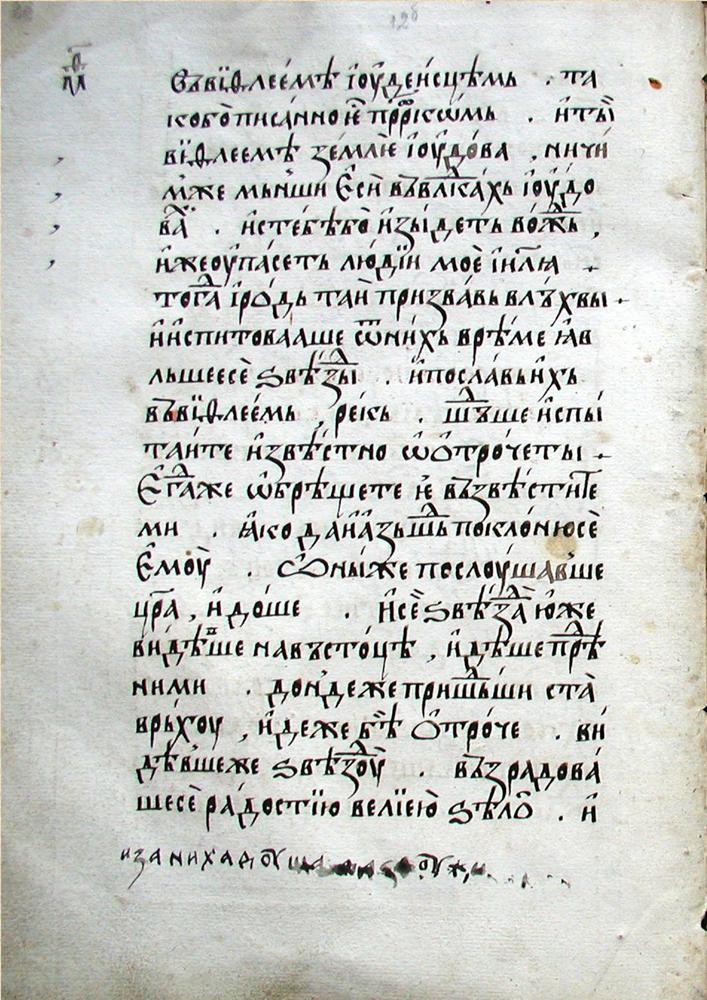 128
въвїѳлее́мѣ і҆оу́деи́сцѣмь . та
ко бѡ̀ писа́нно є҆ прⷪ҇рⷪ҇кѡмь . и҆ ты̀
вїѳлее́мѣ зе́млѥ і҆оу́до́ва , ничи́
мже мьнши Е҆сѝ въ влⷣка́хь і҆оу́до
ваⷯ . и҆ стебѣ бо̀ и҆зы́деть во́ждь ,
и҆же оу҆па́сеть лю́дїи моѐ і҆и҃лꙗ
тогⷣа і҆ро́дь таи́ призва́вь влъхвы
и҆ и҆спитоваа́ше ѿ ни́хь врѣ́ме ꙗ҆в
льшеесѐ ѕвѣзⷣы . и҆ посла́вь и҆хь
въ вїѳлее́мь , ре́кь . шⷣъше и҆спы́
та́ите и҆звѣ́стно ѡ҆ ѻ҆троче́ты
Е҆гⷣаже ѡ҆брѣ́щете и҆ възвѣсти́те
ми . ꙗ҆ко да и҆ а҆зь шⷣь покло́нюсѐ
Е҆моу̀ . Ѡ҆ны́же послоу́шавше
црⷭ҇а , и҆до́ше . и҆ сѐ ѕвѣзⷣа ю҆же
ви́дѣ́вше на въсто́цѣ , и҆дѣ́ше прⷣѣ
ними . донде́же пришⷣьши ста̀
врьхоу , и҆деже бѣ̀ ѻ҆тро́че . ви́
дѣ́вшеже ѕвѣзⷣоу̀ . възрадова́
шесѐ ра́достїю велїею̀ ѕѣлѡ̀ . и҆